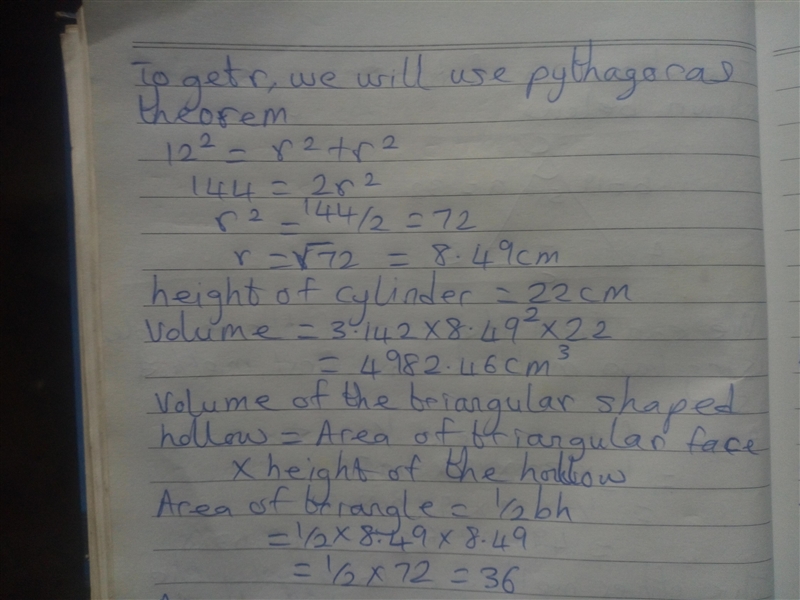 To get r, we will use pythagoras
theorem
12² = r² + r²
144 = 2r²
r² = 144/2 = 72
r = √72 = 8.49cm
height of cylinder = 22cm
Volume = 3.142 × 8.49² × 22
= 4982.46cm³
Volume of the triangular shaped
hollow = Area of triangular face
× height of the hollow
Area of triangle = ½bh
= ½ × 8.49 × 8.49
= ½ × 72 = 36